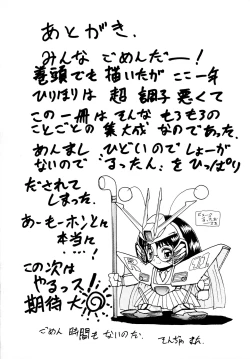 あとがき.
みんな ごめんだー!
巻頭でも描いたが ここ一年
ひりほりは 超 調子 悪くて
この一冊は そんな もろもろの
ことごとの 集大成 なのであった.
あんまし ひどいので しょーが
ないので "すったん"を ひっぱり
だされて
しまった.
あーもーホントに
本当に
……!
この次は
やるっス!!
期待大!
ごめん 時間も ないのだ.